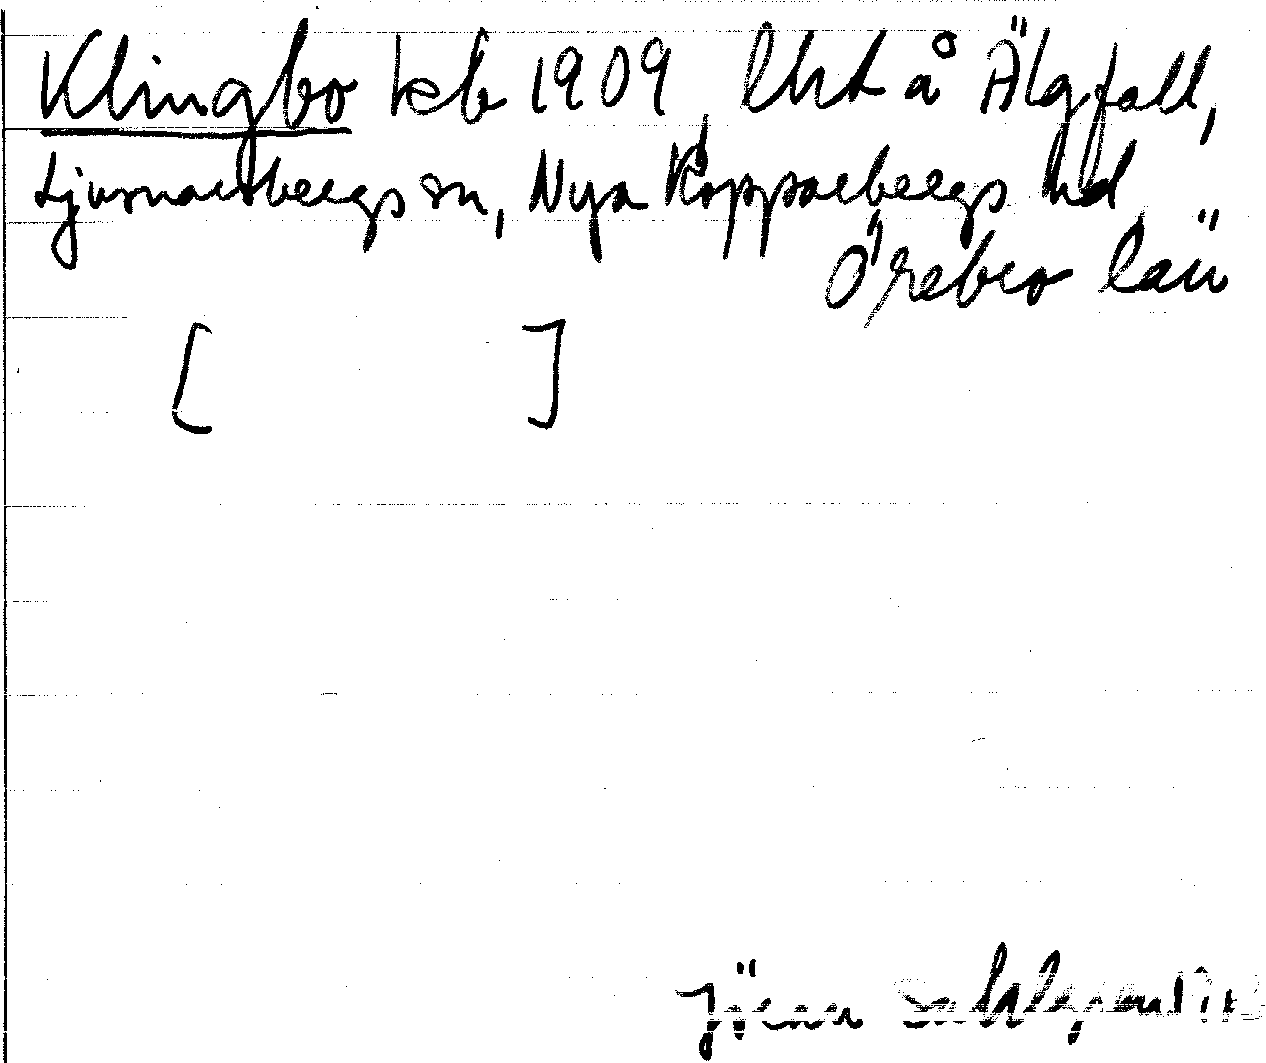 Klingbo kb 1909, lht å Älgfall,
Ljusnarsbergs sn, Nya Kopparbergs hd
Örebro län
[ ]
Jöran Sahlgren